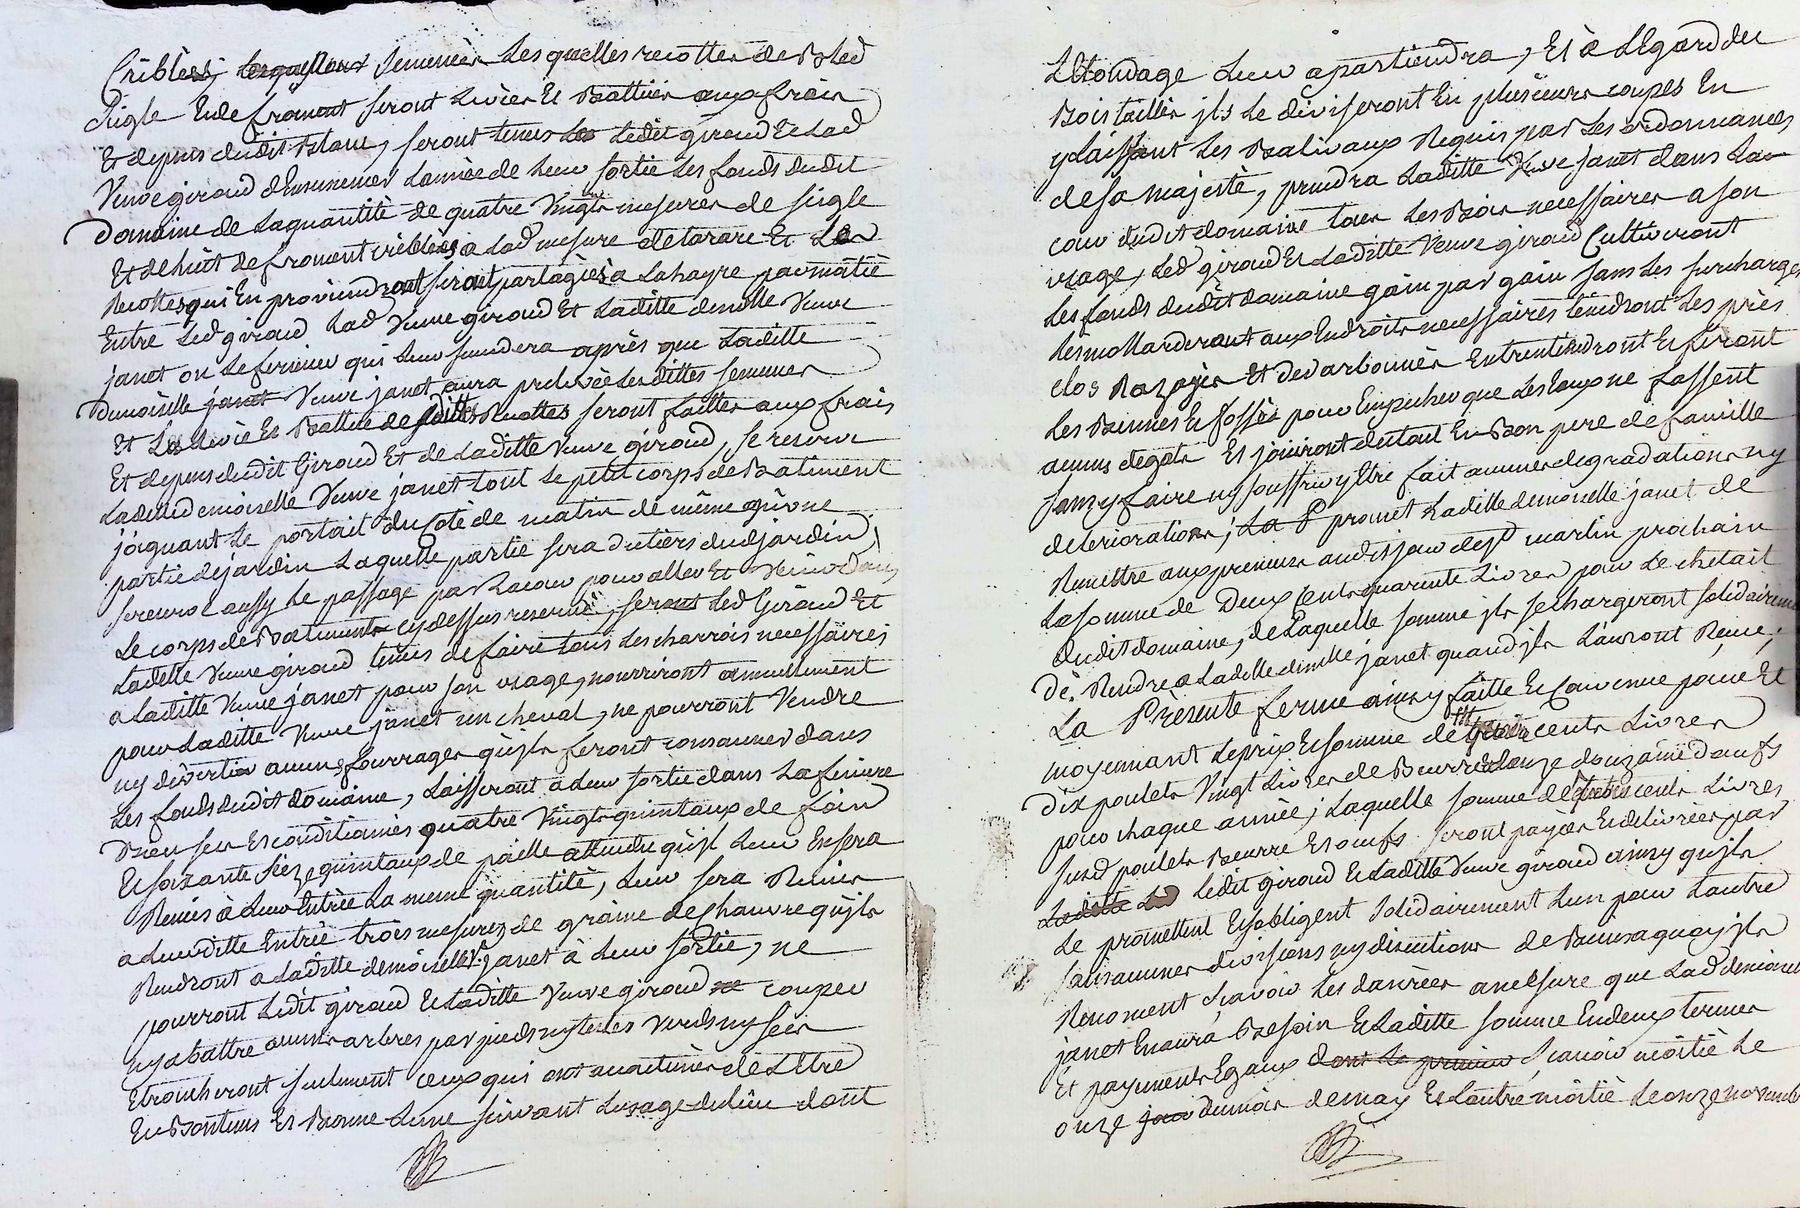 Criblès; semencer Lesquelles recottes de Bled
Seigle Et de froment seront Livèes Et Battues aux frais
Et depens dudit Blanc, seront tenus Ledit giraud Et Lad
Veuve giraud d'Ensemencer Lannèe de Leur sortie Les fonds dudit
Domaine de Laquantitè de quatre vingts mesures de seigle
Et de huit de froment criblèes a Lad mesure de tarare Et Les
Recottes qui En proviendront seront partagèes a Lahayre par moitiè
Entre Led giraud Lad Veuve giraud Et Laditte demlle Veuve
janet ou Le fermier qui Leur succedera après que Laditte
demoiselle janet Veuve janet aura prelevèe Lesdittes semences
Et Les Levèe Et Batture desdittes Recottes seront faittes aux frais
Et depens dudit Giraud Et de Laditte Veuve giraud, se reserve
Laditte demoiselle Veuve janet tout Le petit corps de Batiment
joignant Le portait du cotè de matin de même qu'une
partie de jardin Laquelle partie sera du tiers dud jardin,
se reserve aussy Le passage par La cour pour aller Et Venir dans
Le corps de Batiments cy dessus reservè, seront Led Giraud Et
Laditte Veuve giraud tenus de faire tous Les charrois necessaires
a Laditte Veuve janet pour son usage, nourriront annuellement
pour Laditte Veuve janet un cheval, ne pourront Vendre
ny divertir aucuns fourrages qu'ils feront consommer dans
Les fonds dudit domaine, Laisseront a Leur sortie dans La feniere
bien sec Et conditionnès quatre Vingts quintaux de foin
Et soixante seize quintaux de paille attendu qu'il Leur En sera
Remis à Leur Entrèe La meme quantitè, Leur sera Remise
a Leurditte Entrèe trois mesures de graine de Chanvre qu'ils
Rendront a Laditte demoiselle Ve janet à Leur sortie, ne
pourront Ledit giraud Et Laditte Veuve giraud couper
ny abattre aucuns arbres par pieds ny testes verds ny secs
Etroncheront seulement ceux qui ont accoutumès de L'Etre
En Bontems Et Bonne Lune suivant Lusage du Lieu dont
L'Etondage Leur apartiendra, Et à L'Egard du
Bois taillis ils Le diviseront En plusieurs coupes En
y Laissant Les Balivaux Requis par Les ordonnances
de sa majestè, prendra Laditte Veuve janet dans La
cour dudit domaine tous Les Bois necessaires a son
usage, Led giraud Et Laditte Veuve giraud Cultiveront
Les fonds dudit domaine gain par gain sans Les surcharger
Les mollarderont aux Endroits necessaires tiendront Les près
clos Razoyès Et devarbonnès Entretiendront Et feront
Les Biennes Et fossès pour Empecher que Les Eaux ne fassent
aucuns degats Et joüiront du tout En Bon pere de famille
sans y faire ny souffrir y Etre fait aucunes degradations ny
deteriorations; La P promet Laditte demoiselle janet de
Remettre aux preneurs audit jour de st martin prochain
La somme de Deux Cents quarente Livres pour Le chetail
dudit domaine, de Laquelle somme ils se chargeront solidairement
De Rendre a Laditte demlle janet quand ils L'auront Reçue,
La Presente ferme ainsy faitte Et Convenue pour Et
moyennant Le prix Et somme de cents Livres
Dix poulets Vingt Livres de Beurre douze douzaine d'oeufs
pour chaque annèe; Laquelle somme de cents Livres
susd poulets Beurre Et oeufs seront payèes Et delivrèes par
Laditte Ledit giraud Et Laditte Veuve giraud ainsy qu'ils
Le promettent Et s'obligent solidairement Lun pour Lautre
sans aucunes divisions ny discutions de Biens a quoy ils
Renoncent sçavoir Les danrèes a mesure que Lad demoiselle
janet En aura Besoin Et Laditte somme En deux termes
Et payements Egaux dont Le premier sçavoir moitiè Le
onze jour du mois de may Et L'autre moitiè Le onze novembre